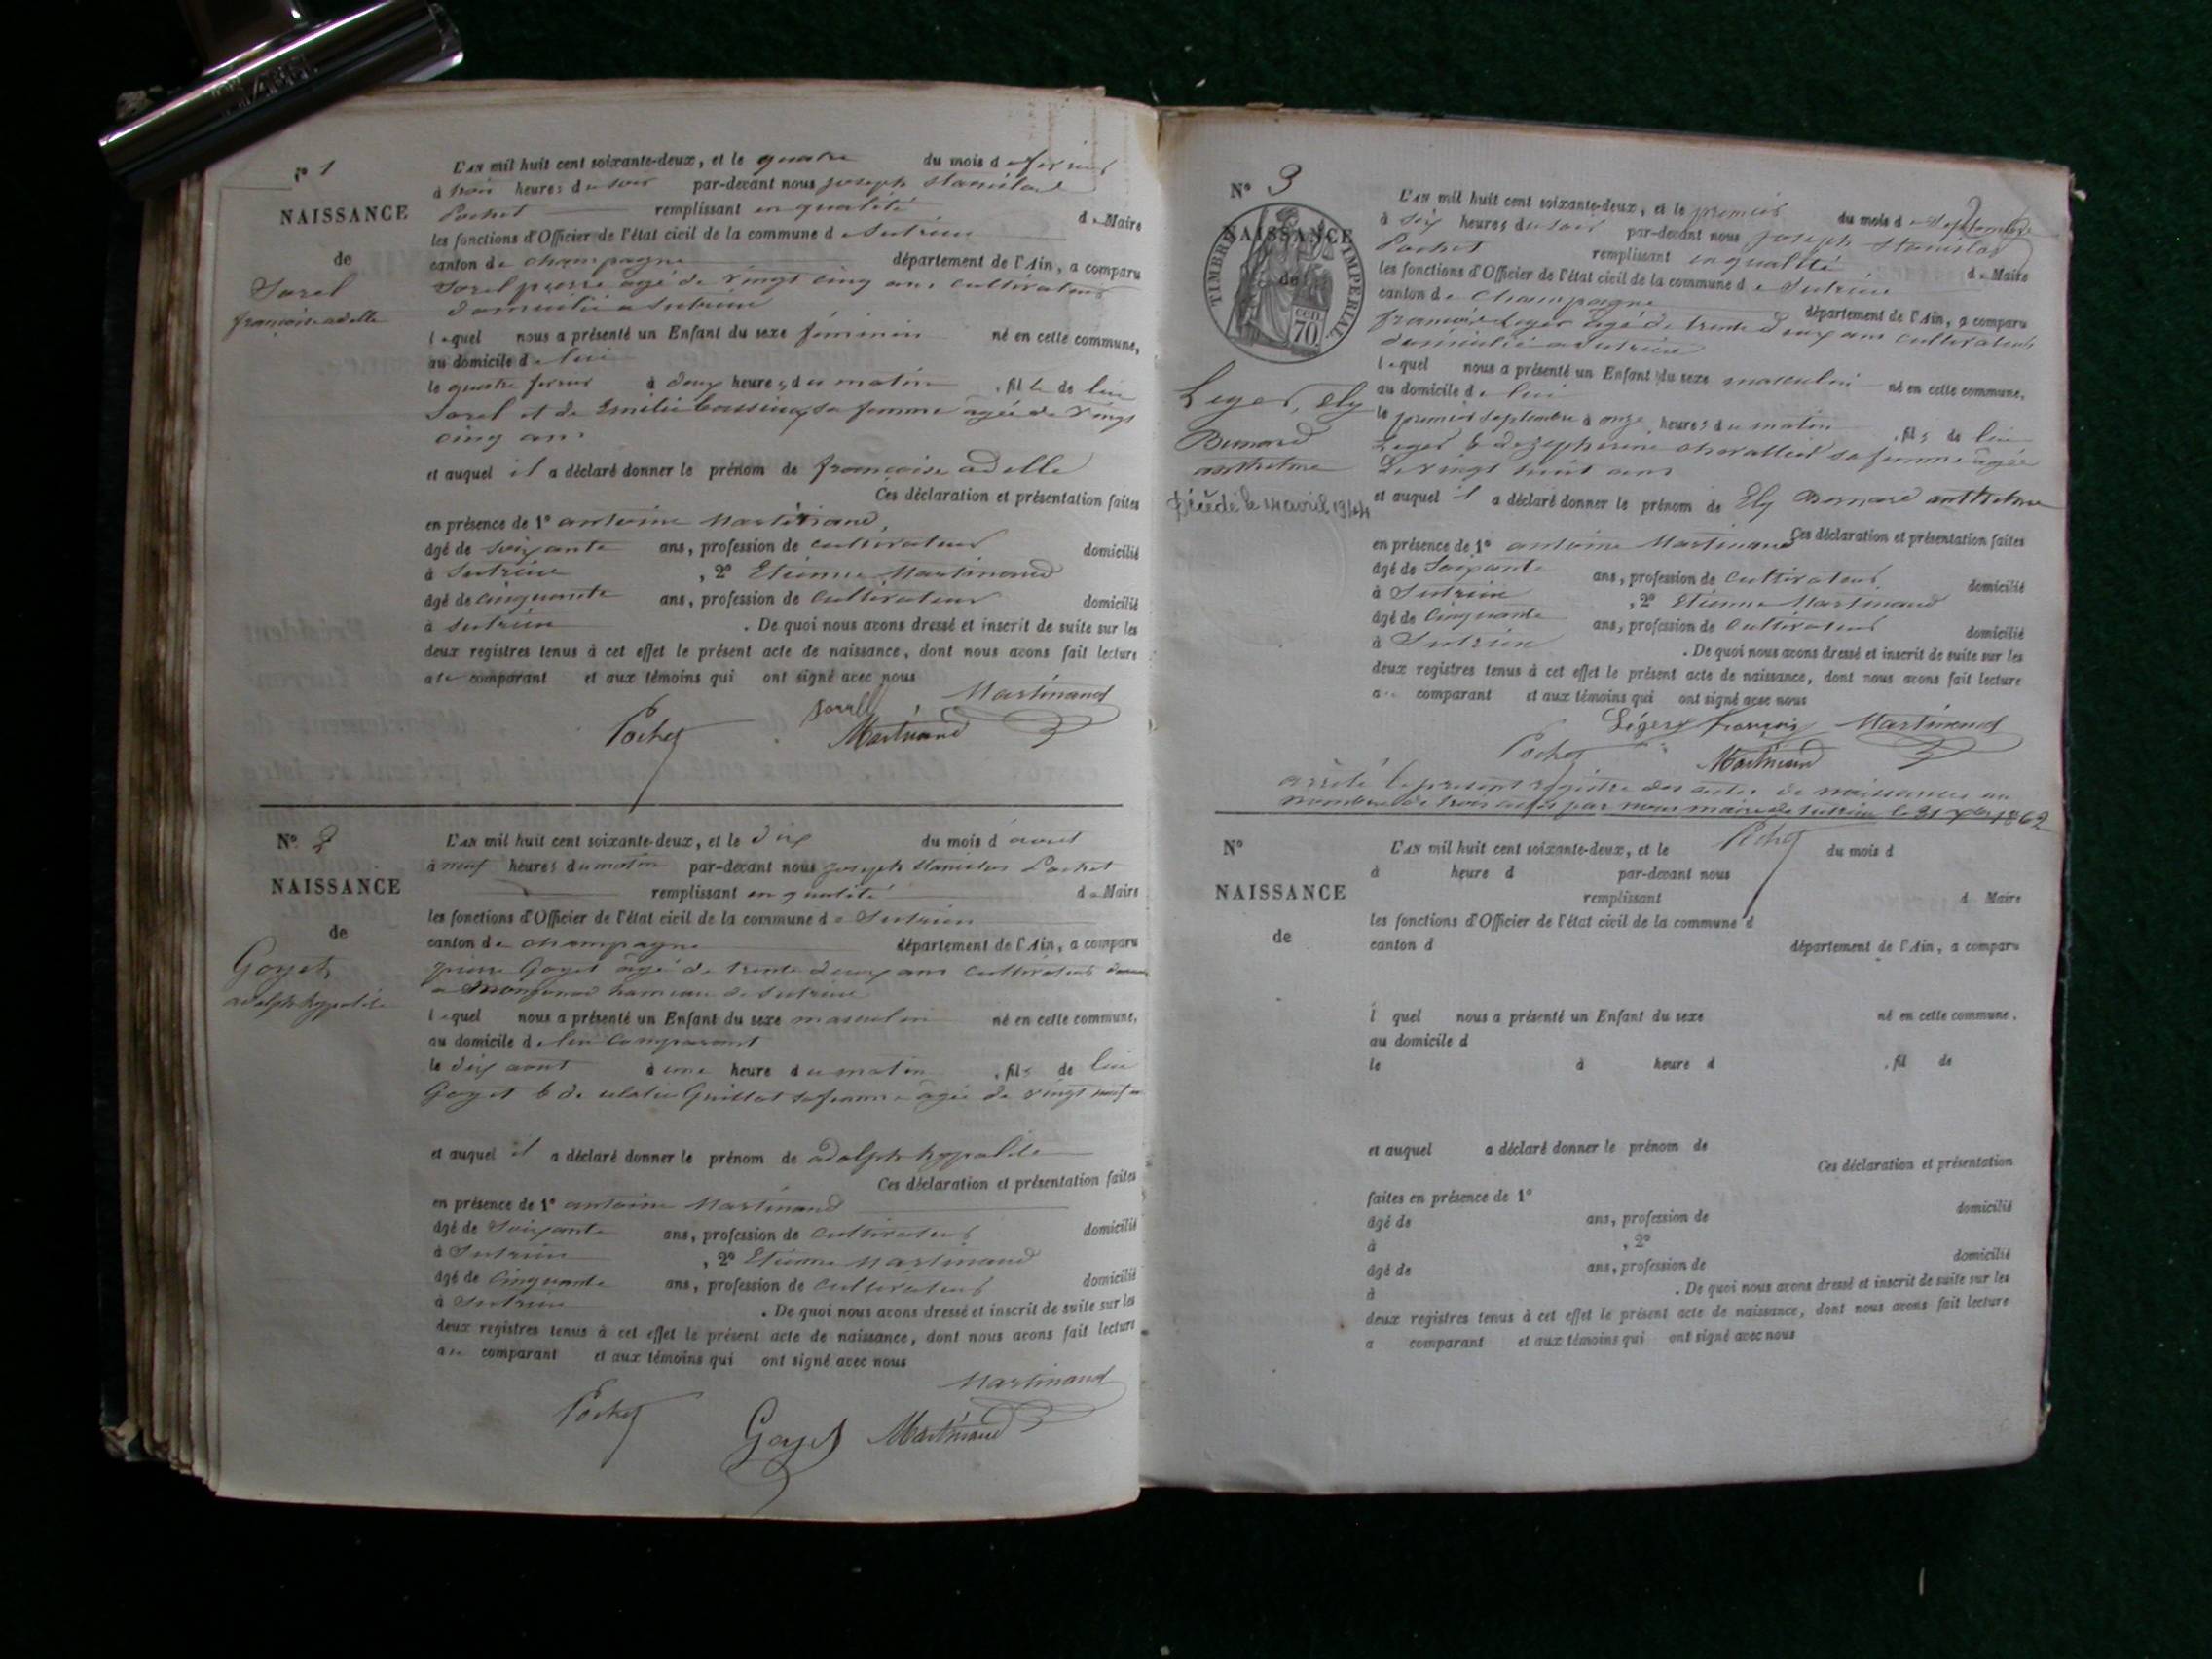 N° 1
NAISSANCE
de
Sorel
françoise adelle
L'AN mil huit cent soixante-deux, et le quatre du mois de fevrier
à trois heures du soir par-devant nous joseph Stanislas
Pochet remplissant en qualité de Maire
les fonctions d'Officier de l'état civil de la commune de Sutrieu
canton de champagne département de l'Ain, a comparu
Sorel pierre agé de vingt cinq ans cultivateur
domicilié a Sutrieu
lequel nous a présenté un Enfant du sexe féminin né en cette commune,
au domicile de lui
le quatre fevrier à deux heures du matin, fille de lui
Sorel et de Emilie sa femme âgée de vingt
cinq ans
et auquel il a déclaré donner le prénom de françoise adelle
Ces déclaration et présentation faites
en présence de 1° antoine Martinand,
âgé de soixante ans, profession de cultivateur domicilié
à Sutrieu, 2° Etienne Martinand
âgé de cinquante ans, profession de cultivateur domicilié
à Sutrieu. De quoi nous avons dressé et inscrit de suite sur les
deux registres tenus à cet effet le présent acte de naissance, dont nous avons fait lecture
au comparant et aux témoins qui ont signé avec nous
Martinand
Pochet Martinand
N° 2
NAISSANCE
de
Goyet
adolph hyppolite
L'AN mil huit cent soixante-deux, et le dix du mois d'aout
à neuf heures du matin par-devant nous joseph Stanislas Pochet
remplissant en qualité de Maire
les fonctions d'Officier de l'état civil de la commune de Sutrieu
canton de champagne département de l'Ain, a comparu
pierre Goyet âgé de trente deux ans cultivateur
a hameau de Sutrieu
lequel nous a présenté un Enfant du sexe masculin né en cette commune,
au domicile de lui comparant
le dix aout à une heure du matin, fils de lui
Goyet & de Guillot sa femme âgée de vingt neuf
et auquel il a déclaré donner le prénom de adolph hyppolite
Ces déclaration et présentation faites
en présence de 1° antoine Martinand
âgé de Soixante ans, profession de cultivateur domicilié
à Sutrieu, 2° Etienne Martinand
âgé de Cinquante ans, profession de cultivateur domicilié
à Sutrieu. De quoi nous avons dressé et inscrit de suite sur les
deux registres tenus à cet effet le présent acte de naissance, dont nous avons fait lecture
au comparant et aux témoins qui ont signé avec nous
Martinand
Pochet Goyet Martinand
N° 3
NAISSANCE
de
TIMBRE IMPÉRIAL
70
Leger, Ely
Bernard
anthelme
Décédé le 14 avril 1944
L'AN mil huit cent soixante-deux, et le premier du mois de Septembre
à six heures du soir par-devant nous joseph Stanislas
Pochet remplissant en qualité de Maire
les fonctions d'Officier de l'état civil de la commune de Sutrieu
canton de Champagne département de l'Ain, a comparu
francois Leger agé de trente deux ans cultivateur
domicilié a Sutrieu
lequel nous a présenté un Enfant du sexe masculin né en cette commune,
au domicile de lui
le premier Septembre à onze heures du matin, fils de lui
Leger & de zephirine chevallier sa femme âgée
de vingt huit ans
et auquel il a déclaré donner le prénom de Ely Bernard anthelme
Ces déclaration et présentation faites
en présence de 1° antoine Martinand
âgé de Soixante ans, profession de cultivateur domicilié
à Sutrieu, 2° Etienne Martinand
âgé de Cinquante ans, profession de Cultivateur domicilié
à Sutrieu. De quoi nous avons dressé et inscrit de suite sur les
deux registres tenus à cet effet le présent acte de naissance, dont nous avons fait lecture
au comparant et aux témoins qui ont signé avec nous
Léger françois Martinand
Pochet Martinand
arrêté le present registre des actes de naissances au
nombre de trois actes par nous maire de Sutrieu le 31 Xbre 1862
Pochet
N°
NAISSANCE
de
L'AN mil huit cent soixante-deux, et le du mois d
à heure d par-devant nous
remplissant d Maire
les fonctions d'Officier de l'état civil de la commune d
canton d département de l'Ain, a comparu
l quel nous a présenté un Enfant du sexe né en cette commune.
au domicile d
le à heure d, fil de
et auquel a déclaré donner le prénom de
Ces déclaration et présentation
faites en présence de 1°
âgé de ans, profession de domicilié
à, 2°
âgé de ans, profession de domicilié
à. De quoi nous avons dressé et inscrit de suite sur les
deux registres tenus à cet effet le présent acte de naissance, dont nous avons fait lecture
a comparant et aux témoins qui ont signé avec nous